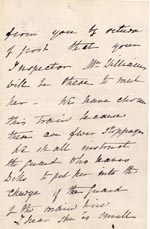 from you by return
of post that your
Inspector Mr
will be there to meet
her - We have chosen
this train because
there are fewer stoppages
We shall instruct
the guard who leaves
to put her into the
charge of the guard
of the main line
I hear she is small